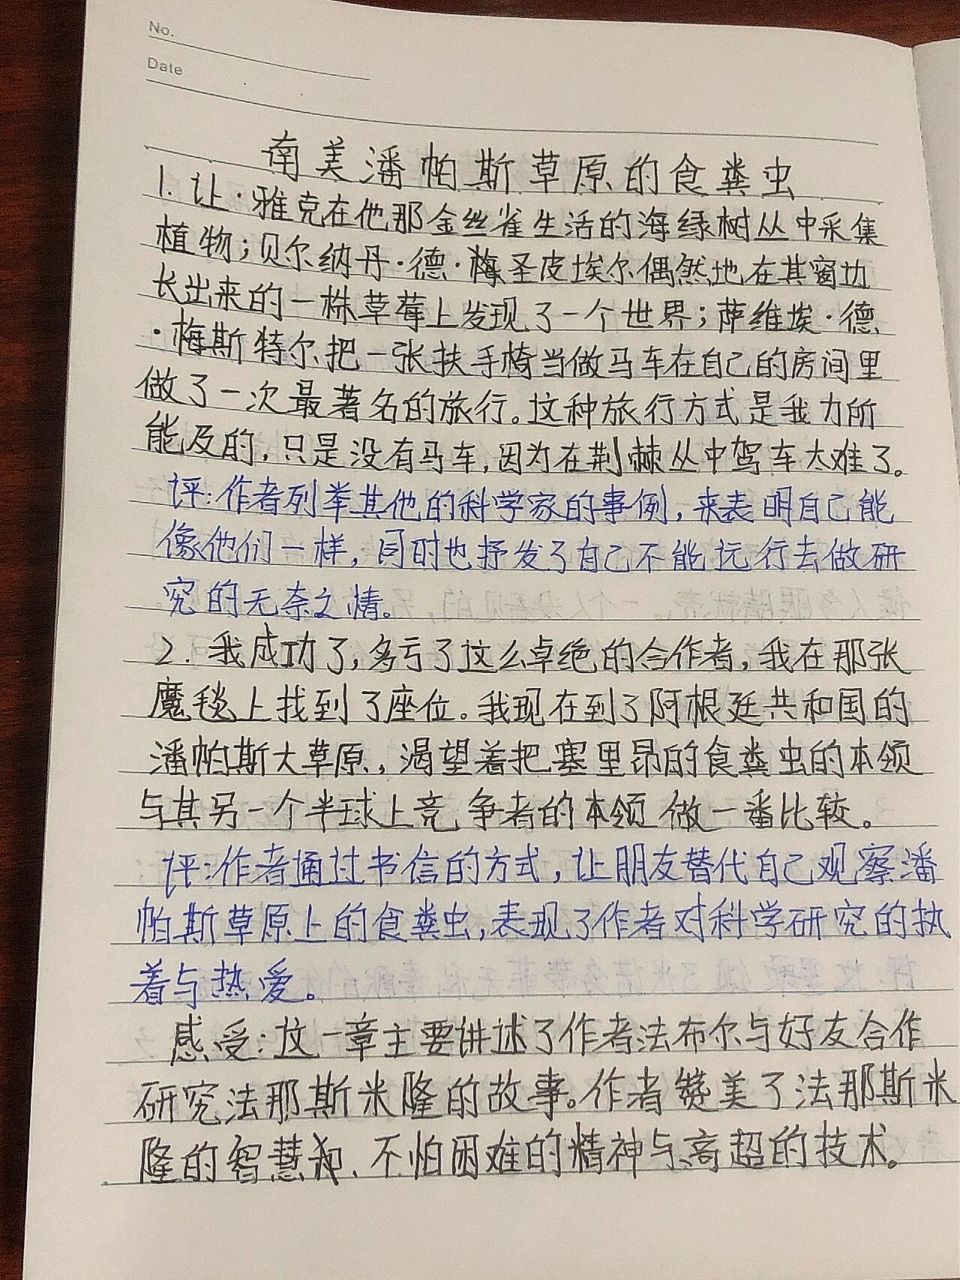 No.
Date
南美潘帕斯草原的食粪虫
1. 让·雅克在他那金丝雀生活的海绿树丛中采集
植物；贝尔纳丹·德·梅圣皮埃尔偶然地在其窗边
长出来的一株草莓上发现了一个世界；萨维埃·德
·梅斯特尔把一张扶手椅当做马车在自己的房间里
做了一次最著名的旅行。这种旅行方式是我力所
能及的，只是没有马车，因为在荆棘丛中驾车太难了。
评：作者列举其他的科学家的事例，来表明自己能
像他们一样，同时也抒发了自己不能远行去做研
究的无奈之情。
2. 我成功了，多亏了这么卓绝的合作者，我在那张
魔毯上找到了座位。我现在到了阿根廷共和国的
潘帕斯大草原，渴望着把塞里昂的食粪虫的本领
与其另一个半球上竞争者的本领做一番比较。
评：作者通过书信的方式，让朋友替代自己观察潘
帕斯草原上的食粪虫，表现了作者对科学研究的执
着与热爱。
感受：这一章主要讲述了作者法布尔与好友合作
研究法那斯米隆的故事。作者赞美了法那斯米
隆的智慧和、不怕困难的精神与高超的技术。